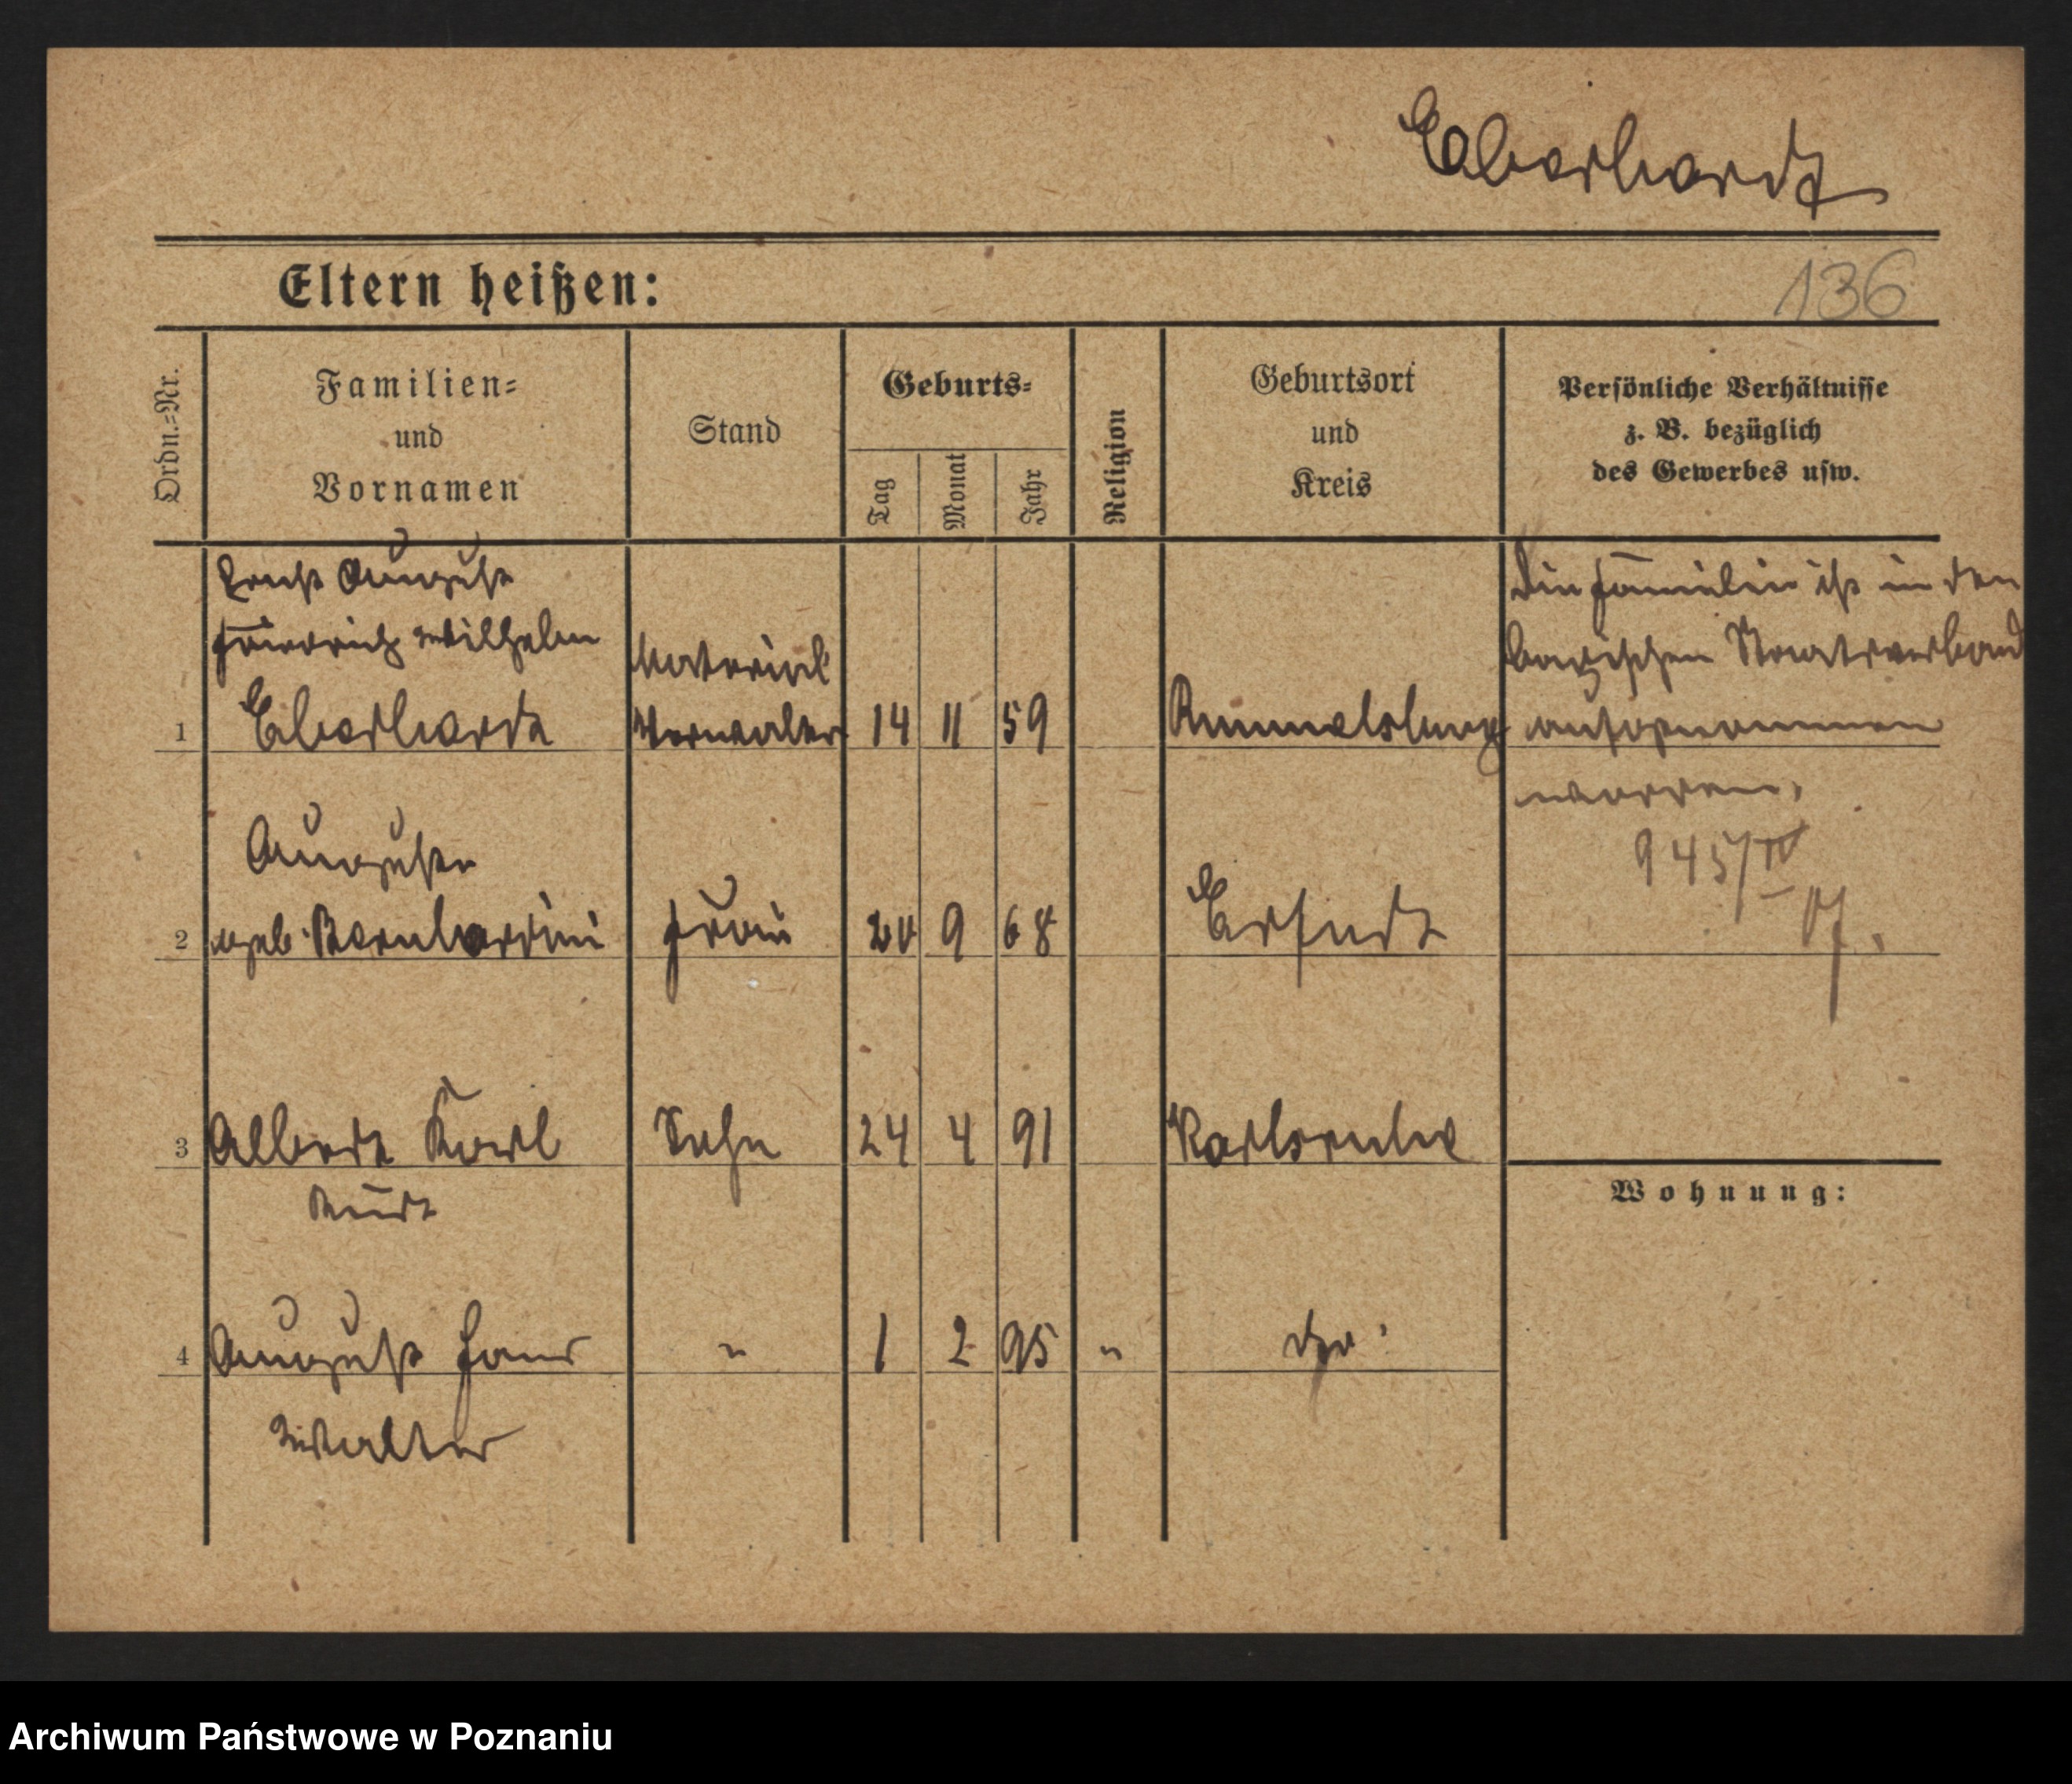 Eberhardt
Eltern heißen:
136
Ordn.=Nr.
Familien=
und
Vornamen
Stand
Geburts=
Tag
Monat
Jahr
Religion
Geburtsort
und
Kreis
Persönliche Verhältnisse
z. B. bezüglich
des Gewerbes usw.
Ernst August
Friedrich Wilhelm
1 Eberhardt
Material
Verwalter
14 11 59
Rummelsburg
Die Familie ist in den
Staatsverband
aufgenommen
worden.
945/IV
07.
Auguste
2 geb. Bernhardini
Frau
20 9 68
Erfurt
3 Albert Karl
Kurt
Sohn
24 4 91
Karlsruhe
Wohnung:
4 August Hans
Walter
"
1 2 95
"
dgo
Archiwum Państwowe w Poznaniu